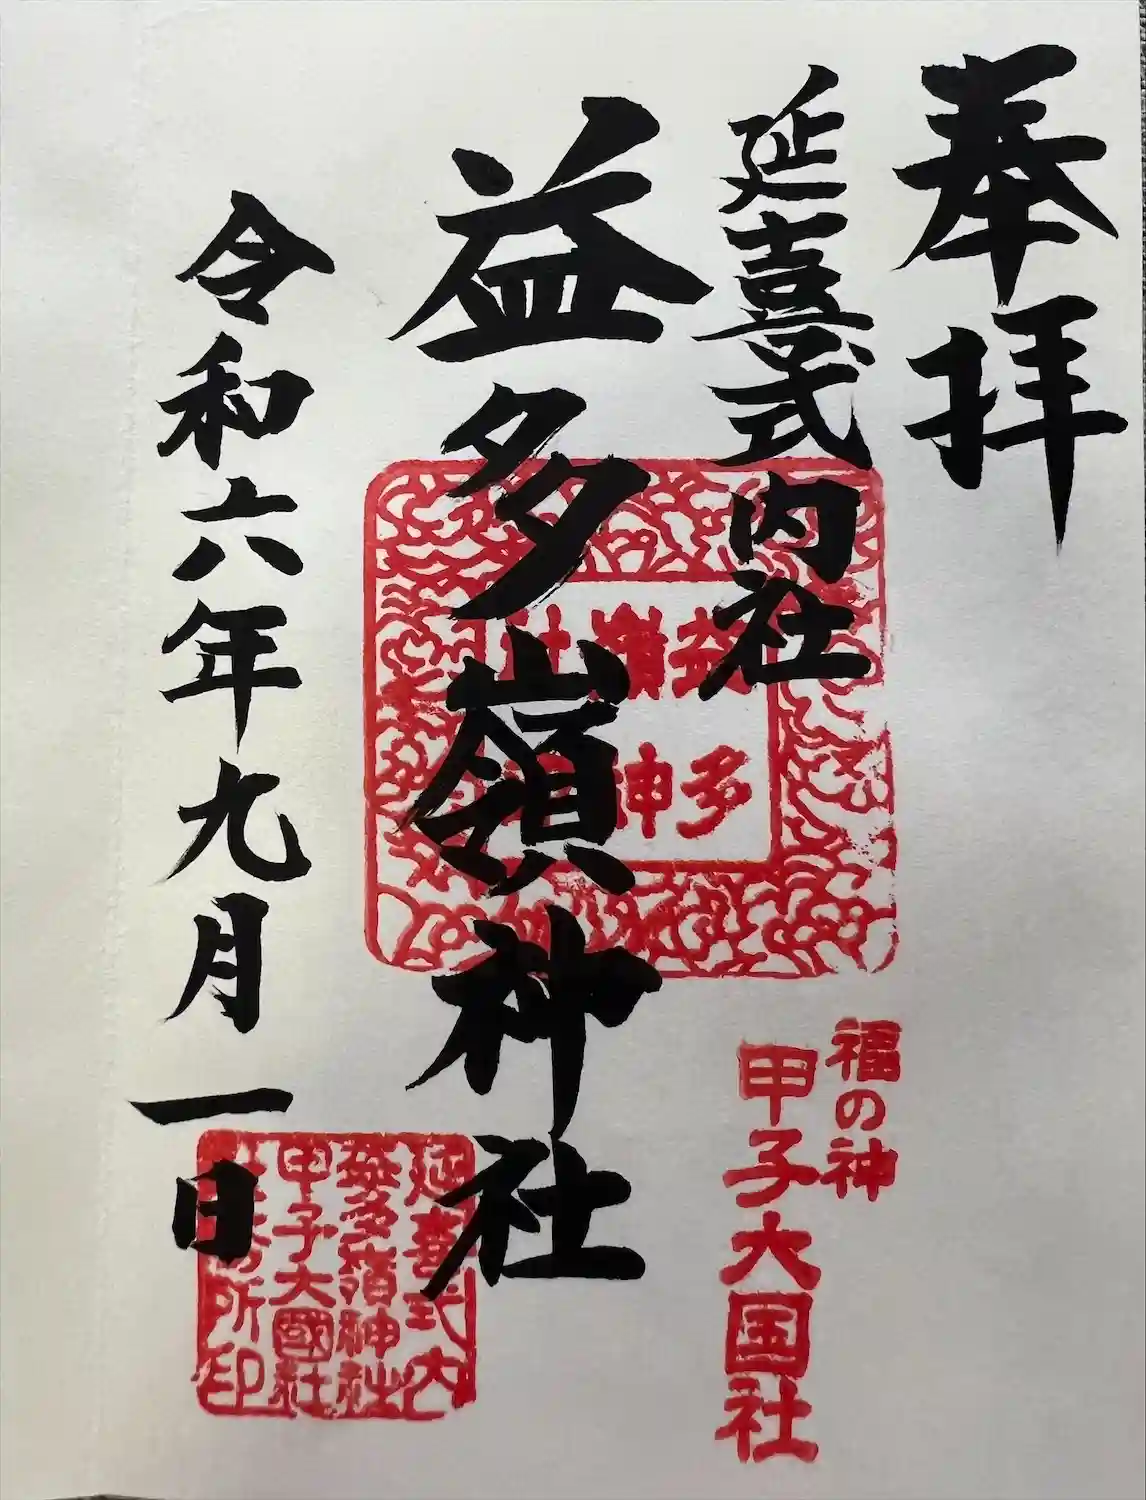 奉拝
延喜式内社
益多嶺神社
令和六年九月一日
益多
嶺神
社
福の神
甲子大国社
延喜式内
益多嶺神社
甲子大國社
所印